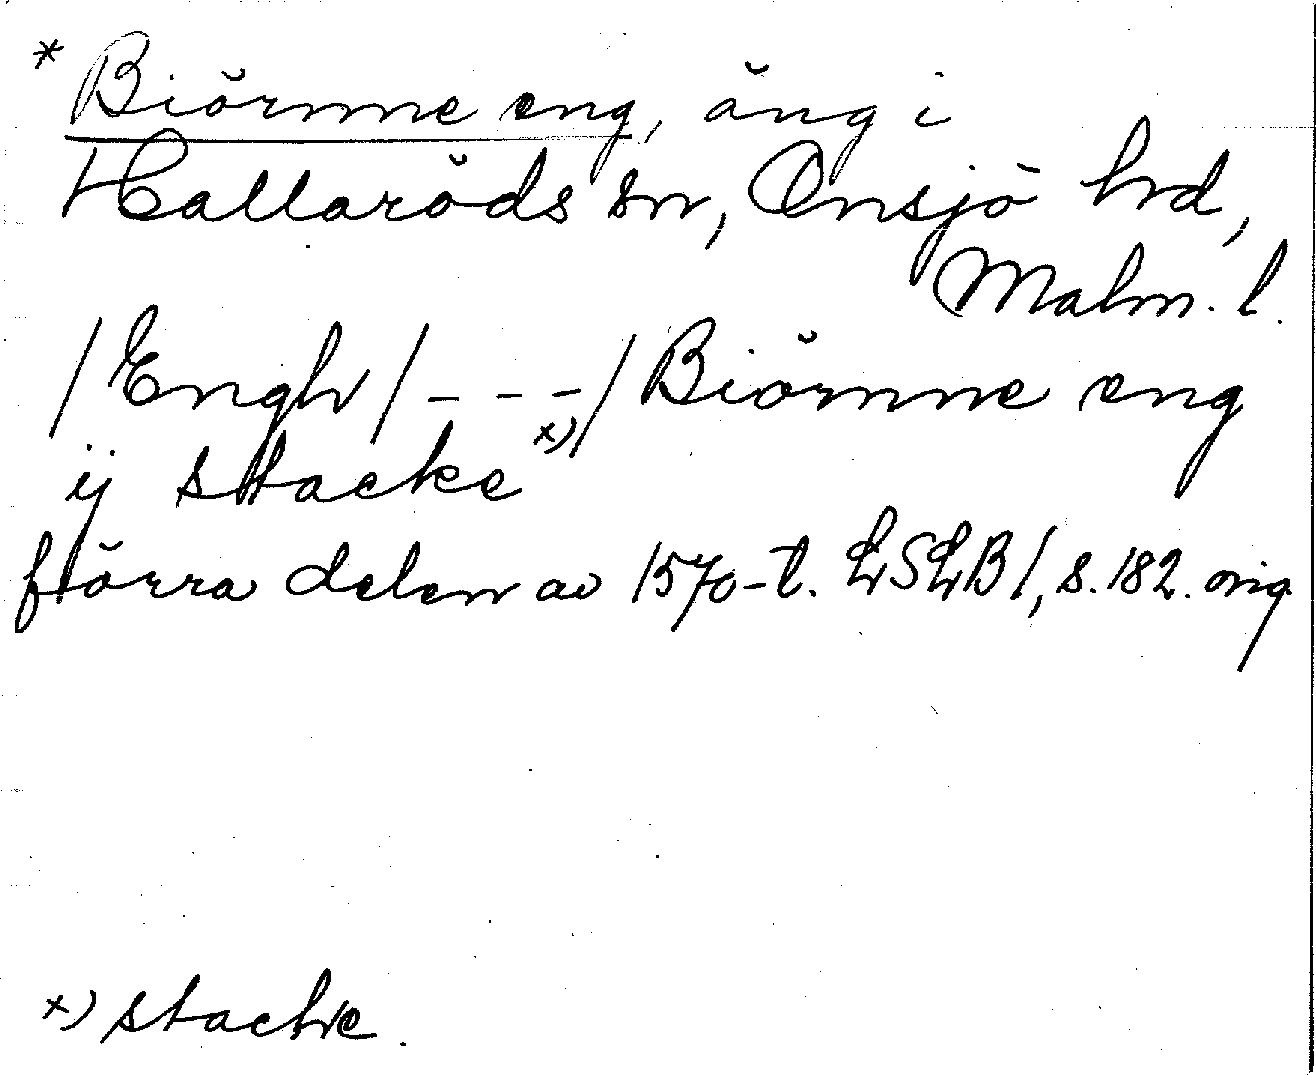 * Biörnne eng, äng i
Hallaröds sn, Onsjö hd,
Malm. l.
/Engh/ - - - / Biörnne eng
ij stacke x)
förra delen av 1570-t. LSLB 1, s. 182. orig
x) stacke.